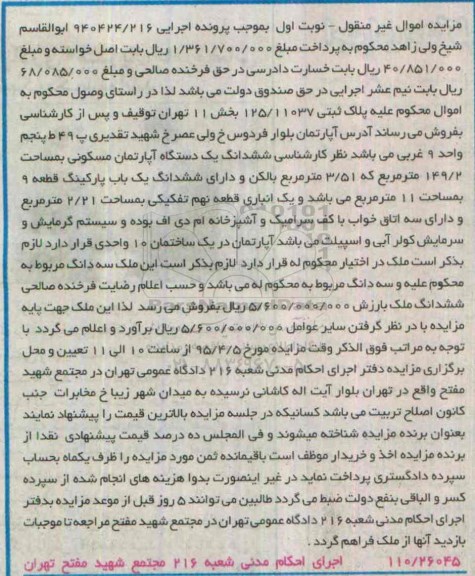 مزایده اموال غیر منقول - نوبت اول بموجب پرونده اجرایی ۹۴۰۴۲۴/۲۱۶ ابوالقاسم
شیخ ولی زاهد محکوم به پرداخت مبلغ ۱/۳۶۱/۷۰۰/۰۰۰ ریال بابت اصل خواسته و مبلغ
۴۰/۸۵۱/۰۰۰ ریال بابت خسارت دادرسی در حق فرخنده صالحی و مبلغ ۶۸/۰۸۵/۰۰۰
ریال بابت نیم عشر اجرایی در حق صندوق دولت می باشد لذا در راستای وصول محکوم به
اموال محکوم علیه پلاک ثبتی ۱۲۵/۱۱۰۳۷ بخش ۱۱ تهران توقیف و پس از کارشناسی
بفروش می رساند آدرس آپارتمان بلوار فردوس خ ولی عصر خ شهید تقدیری پ ۴۹ ط پنجم
واحد ۹ غربی می باشد نظر کارشناسی ششدانگ یک دستگاه آپارتمان مسکونی بمساحت
۱۴۹/۲ مترمربع که ۳/۵۱ مترمربع بالکن و دارای ششدانگ یک باب پارکینگ قطعه ۹
بمساحت ۱۱ مترمربع می باشد و یک انباری قطعه نهم تفکیکی بمساحت ۲/۲۱ مترمربع
و دارای سه اتاق خواب با کف سرامیک و آشپزخانه ام دی اف بوده و سیستم گرمایش و
سرمایش کولر آبی و اسپیلت می باشد آپارتمان در یک ساختمان ۱۰ واحدی قرار دارد لازم
بذکر است ملک در اختیار محکوم له قرار دارد لازم بذکر است این ملک سه دانگ مربوط به
محکوم علیه و سه دانگ مربوط به محکوم له می باشد و حسب اعلام رضایت فرخنده صالحی
ششدانگ ملک با ارزش ۵/۶۰۰/۰۰۰/۰۰۰ ریال بفروش می رسد لذا این ملک جهت پایه
مزایده با در نظر گرفتن سایر عوامل ۵/۶۰۰/۰۰۰/۰۰۰ ریال برآورد و اعلام می گردد با
توجه به مراتب فوق الذکر وقت مزایده مورخ ۹۵/۴/۵ از ساعت ۱۰ الی ۱۱ تعیین و محل
برگزاری مزایده دفتر اجرای احکام مدنی شعبه ۲۱۶ دادگاه عمومی تهران در مجتمع شهید
مفتح واقع در تهران بلوار آیت اله کاشانی نرسیده به میدان شهر زیبا خ مخابرات جنب
کانون اصلاح تربیت می باشد کسانیکه در جلسه مزایده بالاترین قیمت را پیشنهاد نمایند
بعنوان برنده مزایده شناخته میشوند و فی المجلس ده درصد قیمت پیشنهادی نقدا از
برنده مزایده اخذ و خریدار موظف است باقیمانده ثمن مورد مزایده را ظرف یکماه بحساب
سپرده دادگستری پرداخت نماید در غیر اینصورت بدوا هزینه های انجام شده از سپرده
کسر و الباقی بنفع دولت ضبط می گردد طالبین می توانند ۵ روز قبل از موعد مزایده بدفتر
اجرای احکام مدنی شعبه ۲۱۶ دادگاه عمومی تهران در مجتمع شهید مفتح مراجعه تا موجبات
بازدید آنها از ملک فراهم گردد .
۱۱۰/۲۶۰۴۵ اجرای احکام مدنی شعبه ۲۱۶ مجتمع شهید مفتح تهران